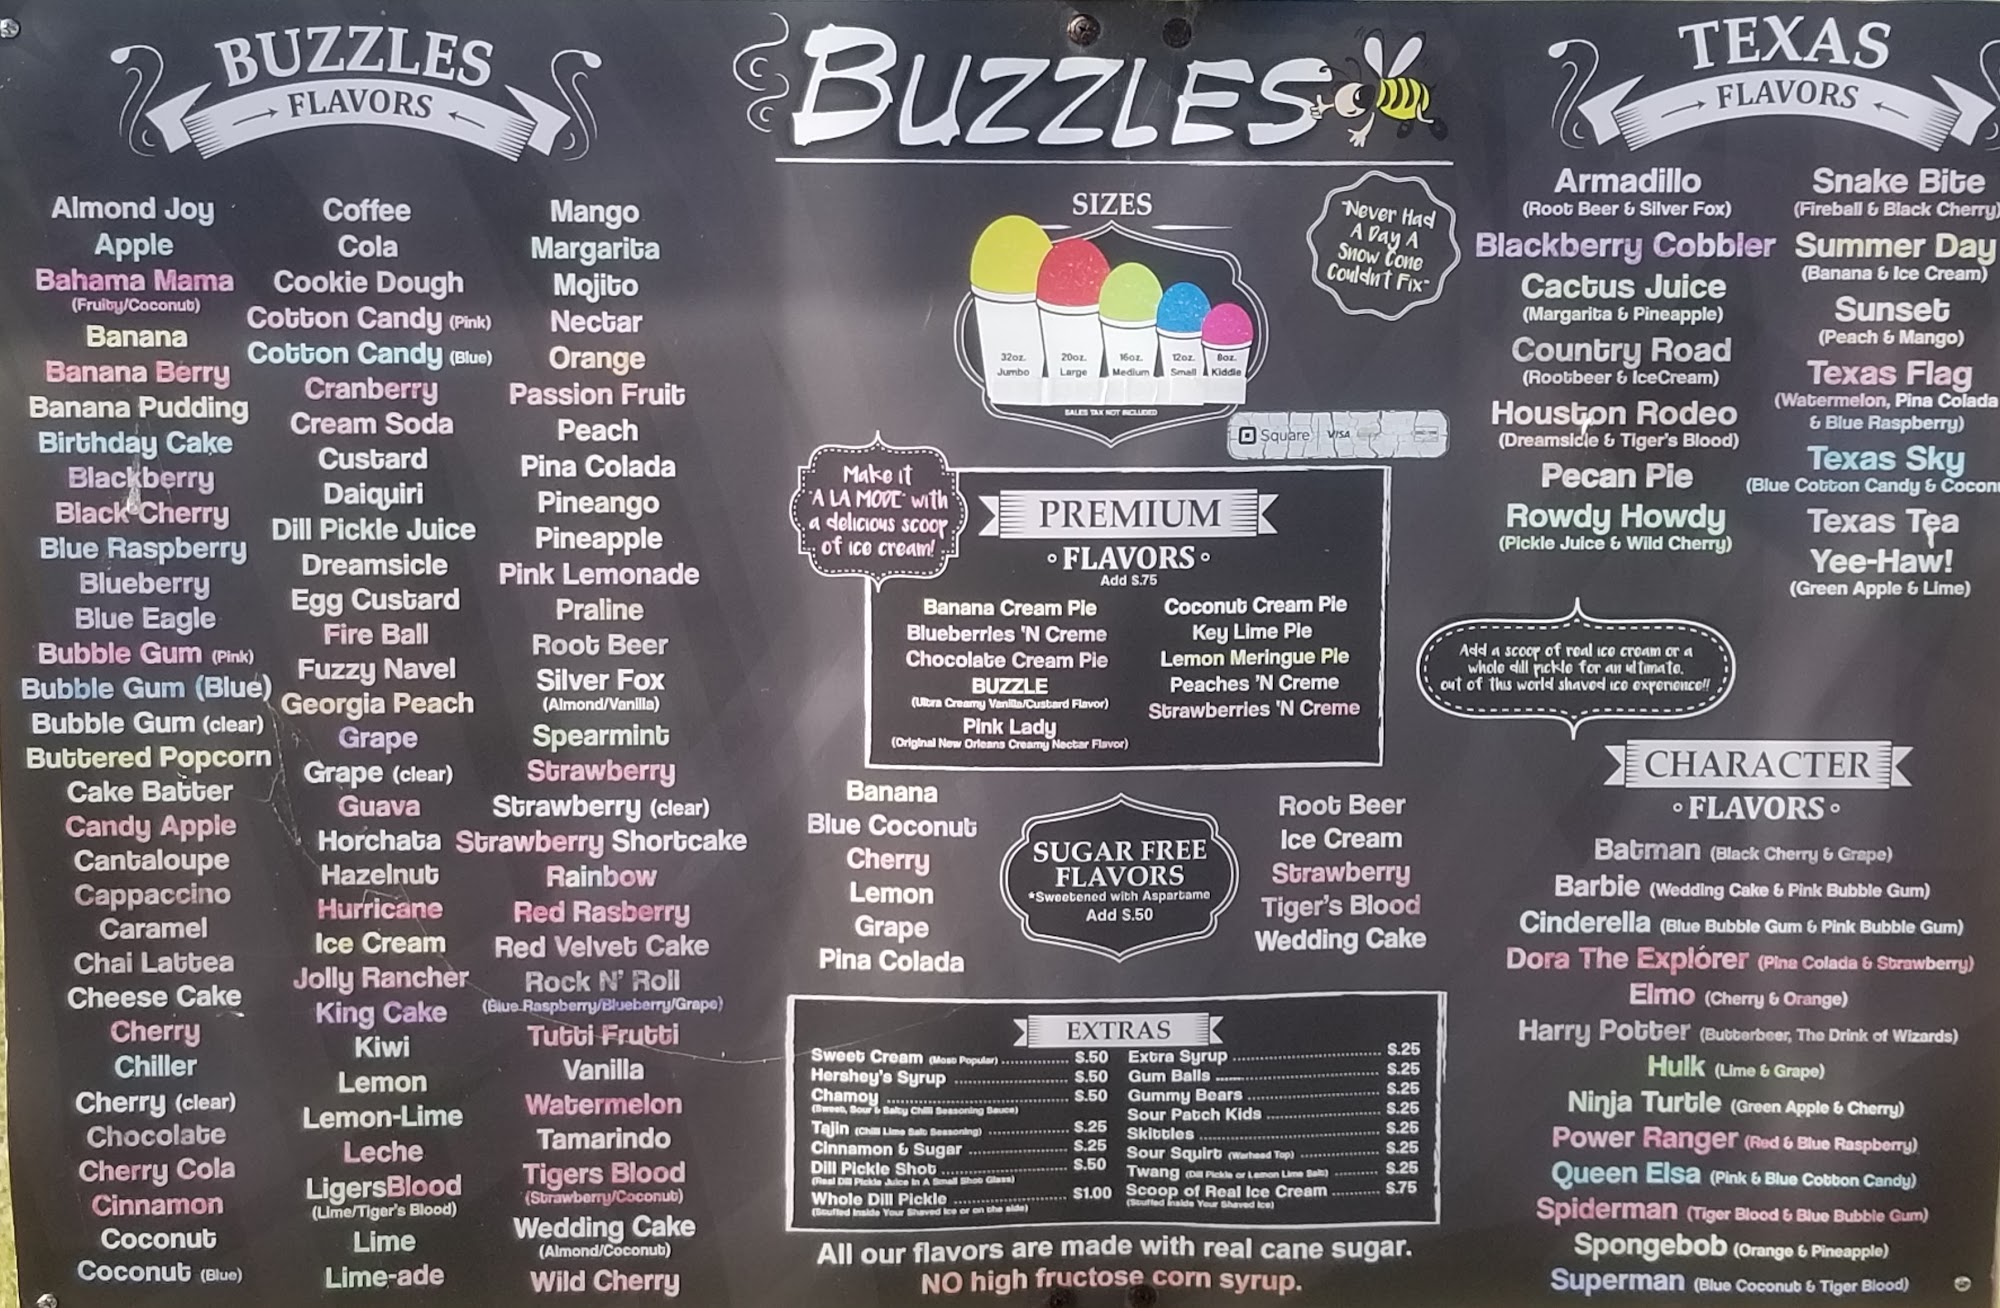 BUZZLES
FLAVORS
Almond Joy
Apple
Bahama Mama
(Fruity/Coconut)
Banana
Banana Berry
Banana Pudding
Birthday Cake
Blackberry
Black Cherry
Blue Raspberry
Blueberry
Blue Eagle
Bubble Gum (Pink)
Bubble Gum (Blue)
Bubble Gum (clear)
Buttered Popcorn
Cake Batter
Candy Apple
Cantaloupe
Cappaccino
Caramel
Chai Lattea
Cheese Cake
Cherry
Chiller
Cherry (clear)
Chocolate
Cherry Cola
Cinnamon
Coconut
Coconut (Blue)
Coffee
Cola
Cookie Dough
Cotton Candy (Pink)
Cotton Candy (Blue)
Cranberry
Cream Soda
Custard
Daiquiri
Dill Pickle Juice
Dreamsicle
Egg Custard
Fire Ball
Fuzzy Navel
Georgia Peach
Grape
Grape (clear)
Guava
Horchata
Hazelnut
Hurricane
Ice Cream
Jolly Rancher
King Cake
Kiwi
Lemon
Lemon-Lime
Leche
LigersBlood
(Lime/Tiger's Blood)
Lime
Lime-ade
Mango
Margarita
Mojito
Nectar
Orange
Passion Fruit
Peach
Pina Colada
Pineango
Pineapple
Pink Lemonade
Praline
Root Beer
Silver Fox
(Almond/Vanilla)
Spearmint
Strawberry
Strawberry (clear)
Strawberry Shortcake
Rainbow
Red Rasberry
Red Velvet Cake
Rock N' Roll
(Blue Raspberry/Blueberry/Grape)
Tutti Frutti
Vanilla
Watermelon
Tamarindo
Tigers Blood
(Strawberry/Coconut)
Wedding Cake
(Almond/Coconut)
Wild Cherry
BUZZLES
SIZES
32oz. Jumbo
20oz. Large
16oz. Medium
12oz. Small
8oz. Kiddie
SALES TAX NOT INCLUDED
"Never Had
A Day A
Snow Cone
Couldn't Fix"
Square VISA
Make it
"A LA MODE" with
a delicious scoop
of ice cream!
PREMIUM
FLAVORS
Add $.75
Banana Cream Pie
Blueberries 'N Creme
Chocolate Cream Pie
BUZZLE
(Ultra Creamy Vanilla/Custard Flavor)
Pink Lady
(Original New Orleans Creamy Nectar Flavor)
Coconut Cream Pie
Key Lime Pie
Lemon Meringue Pie
Peaches 'N Creme
Strawberries 'N Creme
Banana
Blue Coconut
Cherry
Lemon
Grape
Pina Colada
SUGAR FREE
FLAVORS
*Sweetened with Aspartame
Add $.50
Root Beer
Ice Cream
Strawberry
Tiger's Blood
Wedding Cake
EXTRAS
Sweet Cream (Most Popular) $.50
Hershey's Syrup $.50
Chamoy $.50
(Sweet, Sour & Salty Chili Seasoning Sauce)
Tajin (Chili Lime Salt Seasoning) $.25
Cinnamon & Sugar $.25
Dill Pickle Shot $.50
(Real Dill Pickle Juice In A Small Shot Glass)
Whole Dill Pickle $1.00
(Stuffed Inside Your Shaved Ice or on the side)
Extra Syrup $.25
Gum Balls $.25
Gummy Bears $.25
Sour Patch Kids $.25
Skittles $.25
Sour Squirt (Warhead Top) $.25
Twang (Dill Pickle or Lemon Lime Salt) $.25
Scoop of Real Ice Cream $.75
(Stuffed Inside Your Shaved Ice)
All our flavors are made with real cane sugar.
NO high fructose corn syrup.
TEXAS
FLAVORS
Armadillo
(Root Beer & Silver Fox)
Blackberry Cobbler
Cactus Juice
(Margarita & Pineapple)
Country Road
(Rootbeer & IceCream)
Houston Rodeo
(Dreamsicle & Tiger's Blood)
Pecan Pie
Rowdy Howdy
(Pickle Juice & Wild Cherry)
Snake Bite
(Fireball & Black Cherry)
Summer Day
(Banana & Ice Cream)
Sunset
(Peach & Mango)
Texas Flag
(Watermelon, Pina Colada
& Blue Raspberry)
Texas Sky
(Blue Cotton Candy & Coconu
Texas Tea
Yee-Haw!
(Green Apple & Lime)
Add a scoop of real ice cream or a
whole dill pickle for an ultimate,
out of this world shaved ice experience!!
CHARACTER
FLAVORS
Batman (Black Cherry & Grape)
Barbie (Wedding Cake & Pink Bubble Gum)
Cinderella (Blue Bubble Gum & Pink Bubble Gum)
Dora The Explórer (Pina Colada & Strawberry)
Elmo (Cherry & Orange)
Harry Potter (Butterbeer, The Drink of Wizards)
Hulk (Lime & Grape)
Ninja Turtle (Green Apple & Cherry)
Power Ranger (Red & Blue Raspberry)
Queen Elsa (Pink & Blue Cotton Candy)
Spiderman (Tiger Blood & Blue Bubble Gum)
Spongebob (Orange & Pineapple)
Superman (Blue Coconut & Tiger Blood)